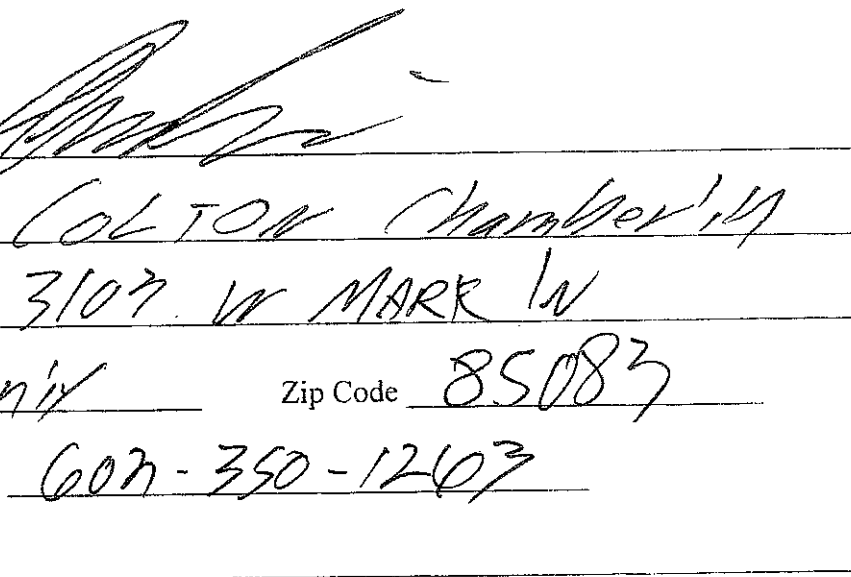 COLTON Chamberlin
3103 W MARK LN
nix Zip Code 85083
602-350-1263